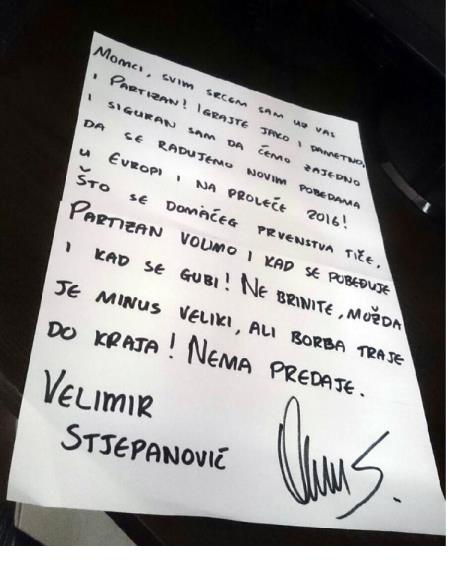 MOMCI, SVIM SRCEM SAM UZ VAS
I PARTIZAN! IGRAJTE JAKO I PAMETNO,
I SIGURAN SAM DA ĆEMO ZAJEDNO
DA SE RADUJEMO NOVIM POBEDAMA
U EVROPI I NA PROLEĆE 2016!
ŠTO SE DOMAĆEG PRVENSTVA TIČE,
PARTIZAN VOLIMO I KAD SE POBEĐUJE
I KAD SE GUBI! NE BRINITE, MOŽDA
JE MINUS VELIKI, ALI BORBA TRAJE
DO KRAJA! NEMA PREDAJE.
VELIMIR
STJEPANOVIĆ